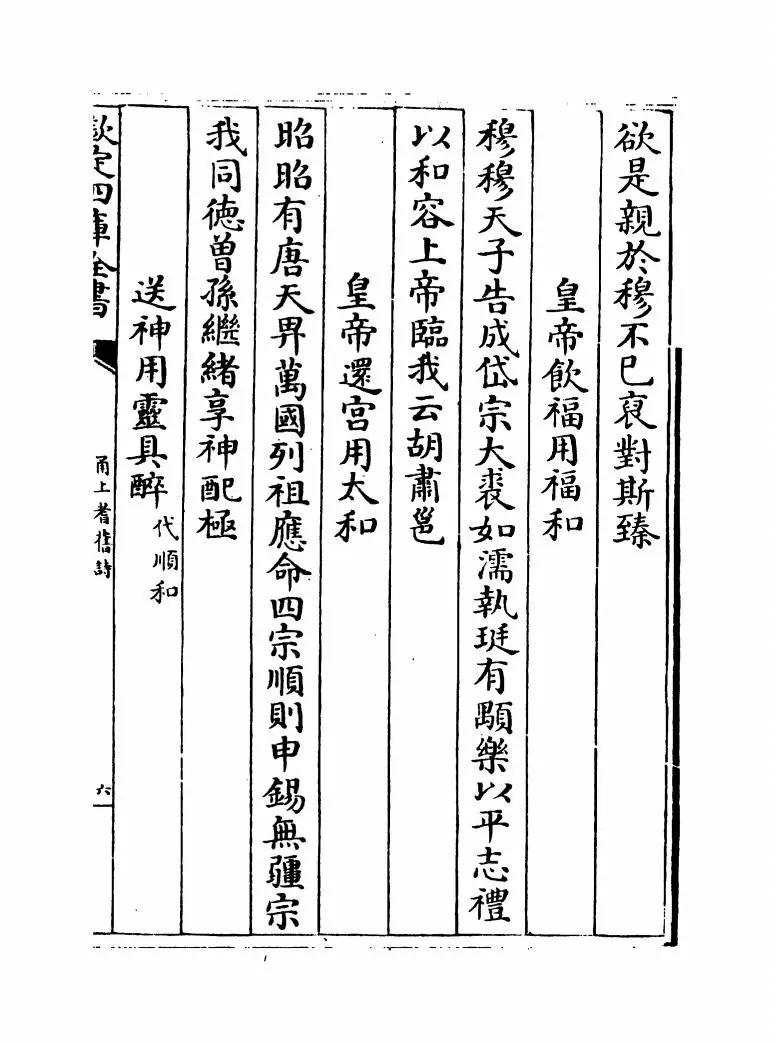 欲是親於穆不已裒對斯臻
皇帝飲福用福和
穆穆天子告成岱宗大裘如濡執珽有顒樂以平志禮
以和容上帝臨我云胡肅邕
皇帝還宫用太和
昭昭有唐天畀萬國列祖應命四宗順則申錫無疆宗
我同德曾孫繼緒享神配極
送神用靈具醉代順和
欽定四庫全書
甬上耆舊詩
六